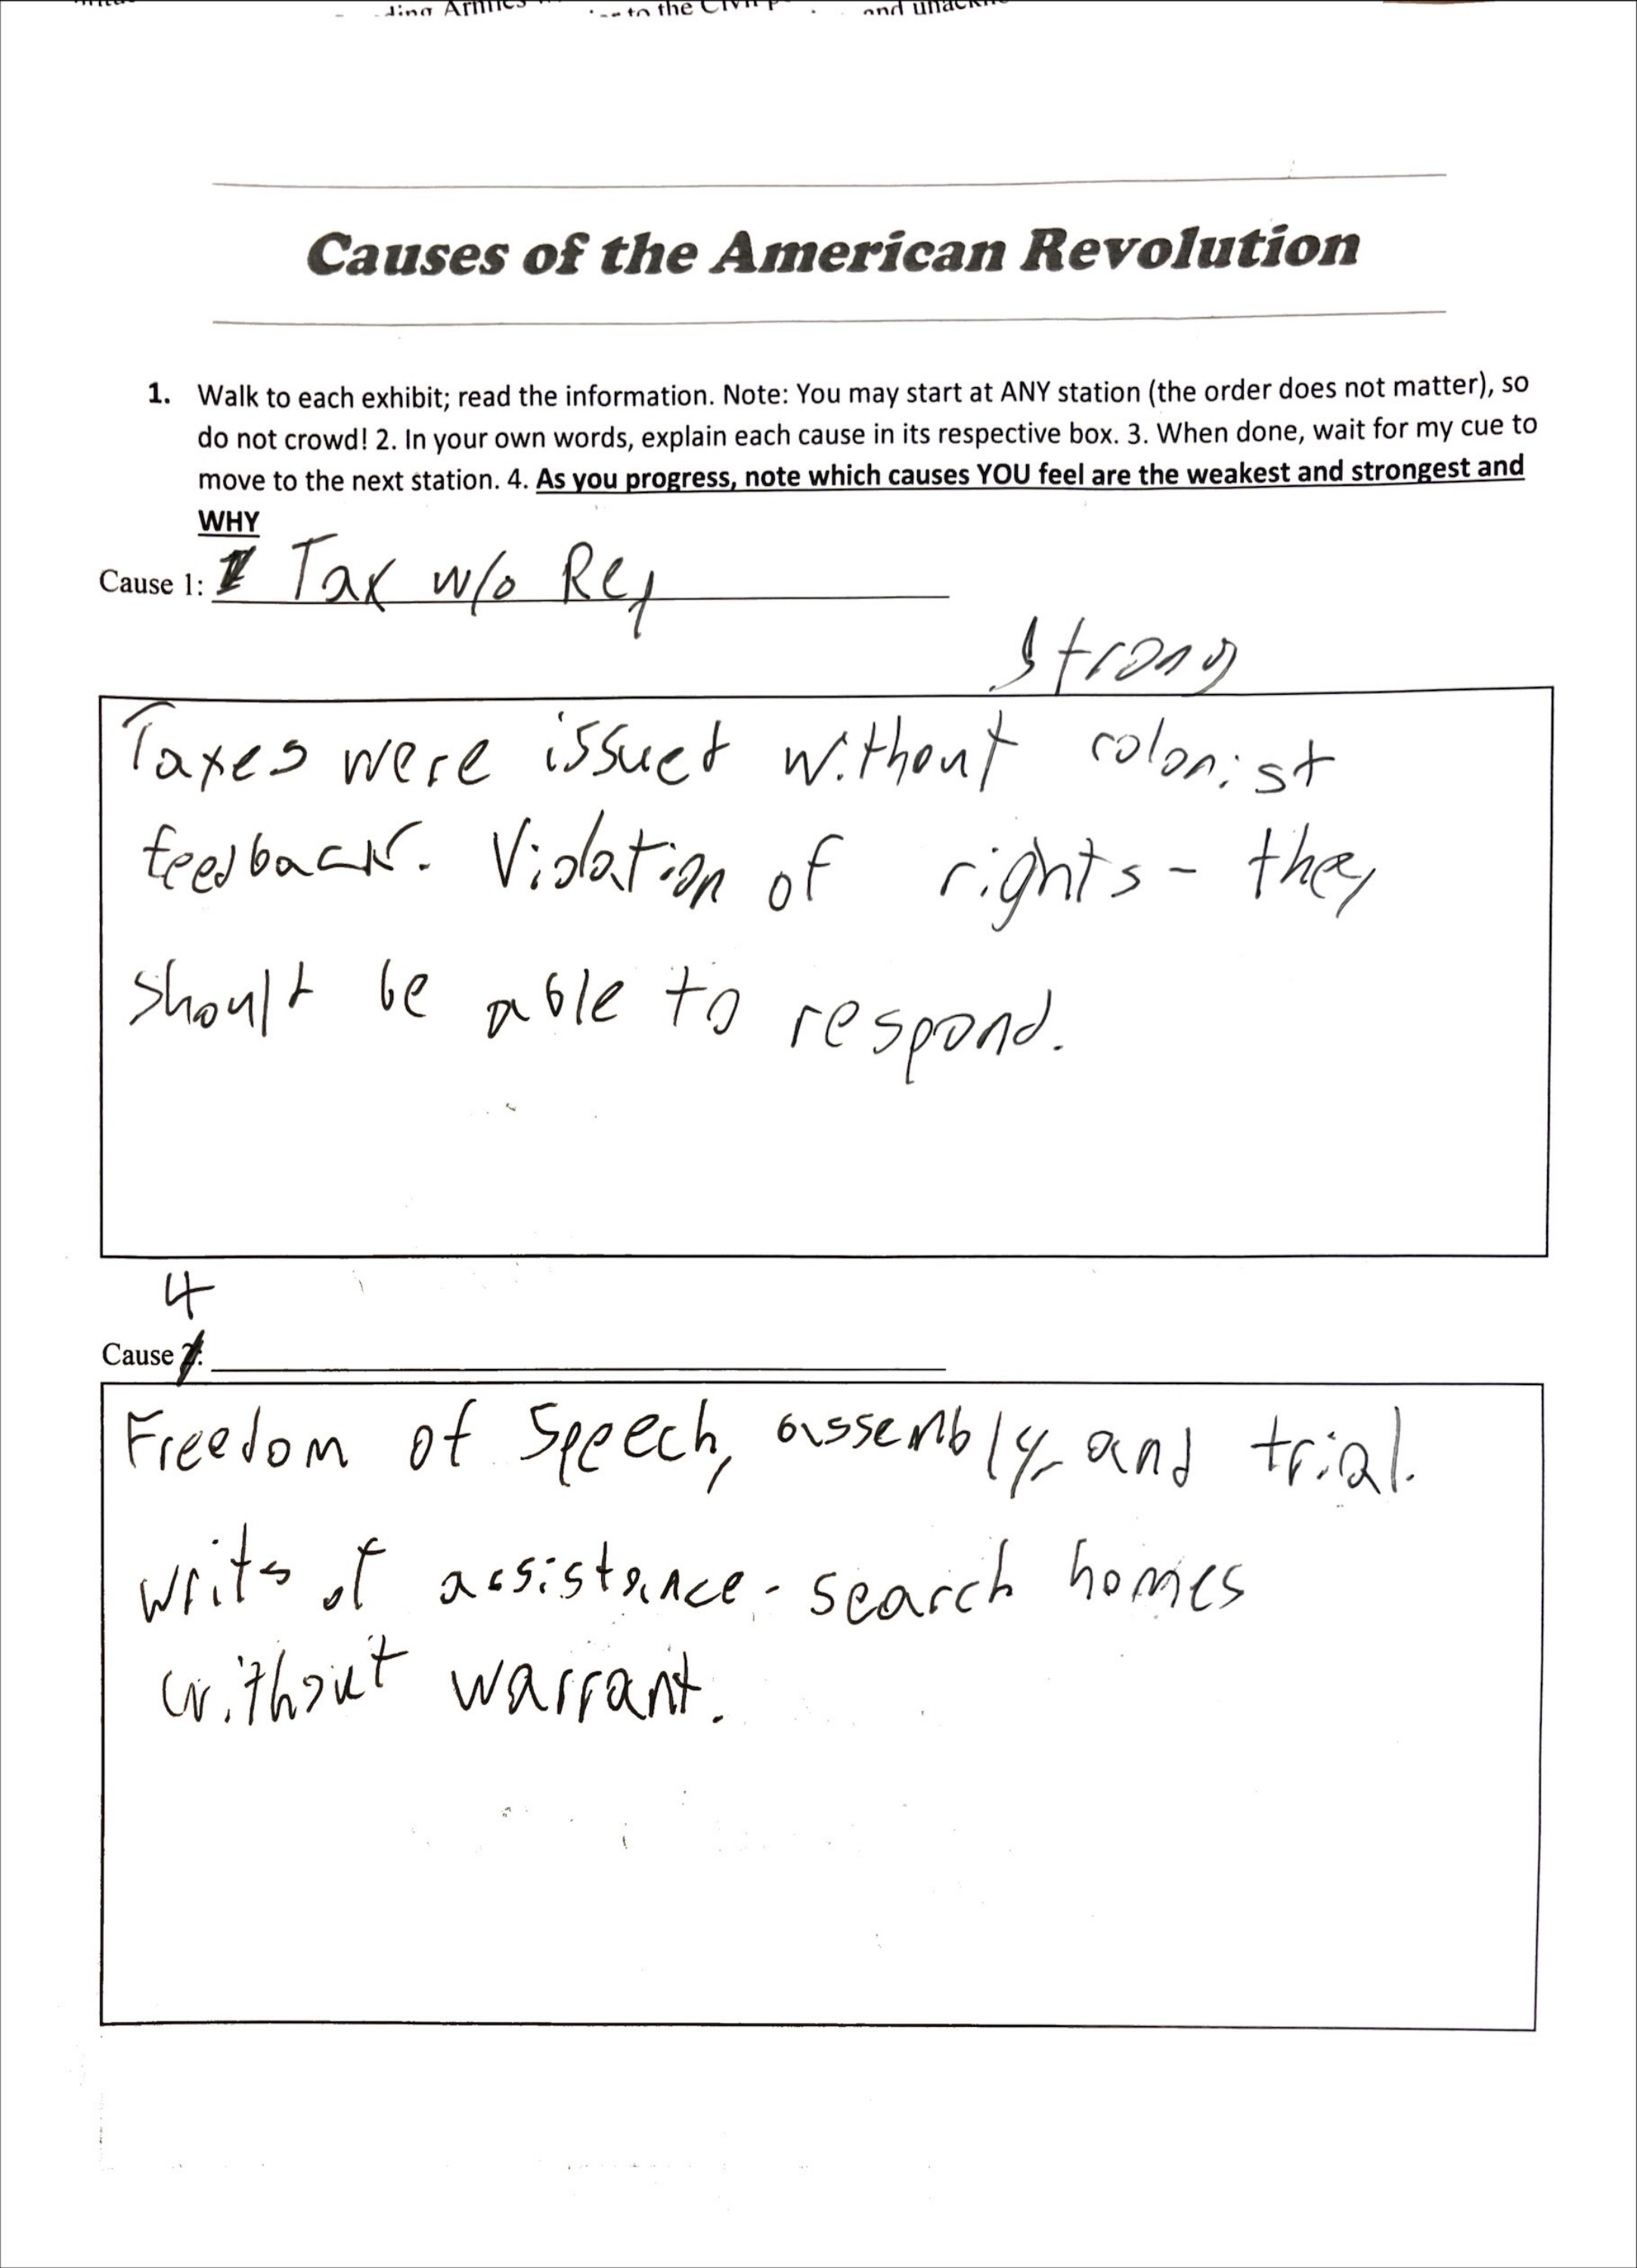 to the
Causes of the American Revolution
1. Walk to each exhibit; read the information. Note: You may start at ANY station (the order does not matter), so
do not crowd! 2. In your own words, explain each cause in its respective box. 3. When done, wait for my cue to
move to the next station. 4. As you progress, note which causes YOU feel are the weakest and strongest and
WHY
Cause 1: Tax w/o Rep
Strong
Taxes were issued without colonist
feedback. Violation of rights - they
should be able to respond.
4
Cause
Freedom of Speech, assembly, and trial.
writs of assistance - search homes
without warrant.